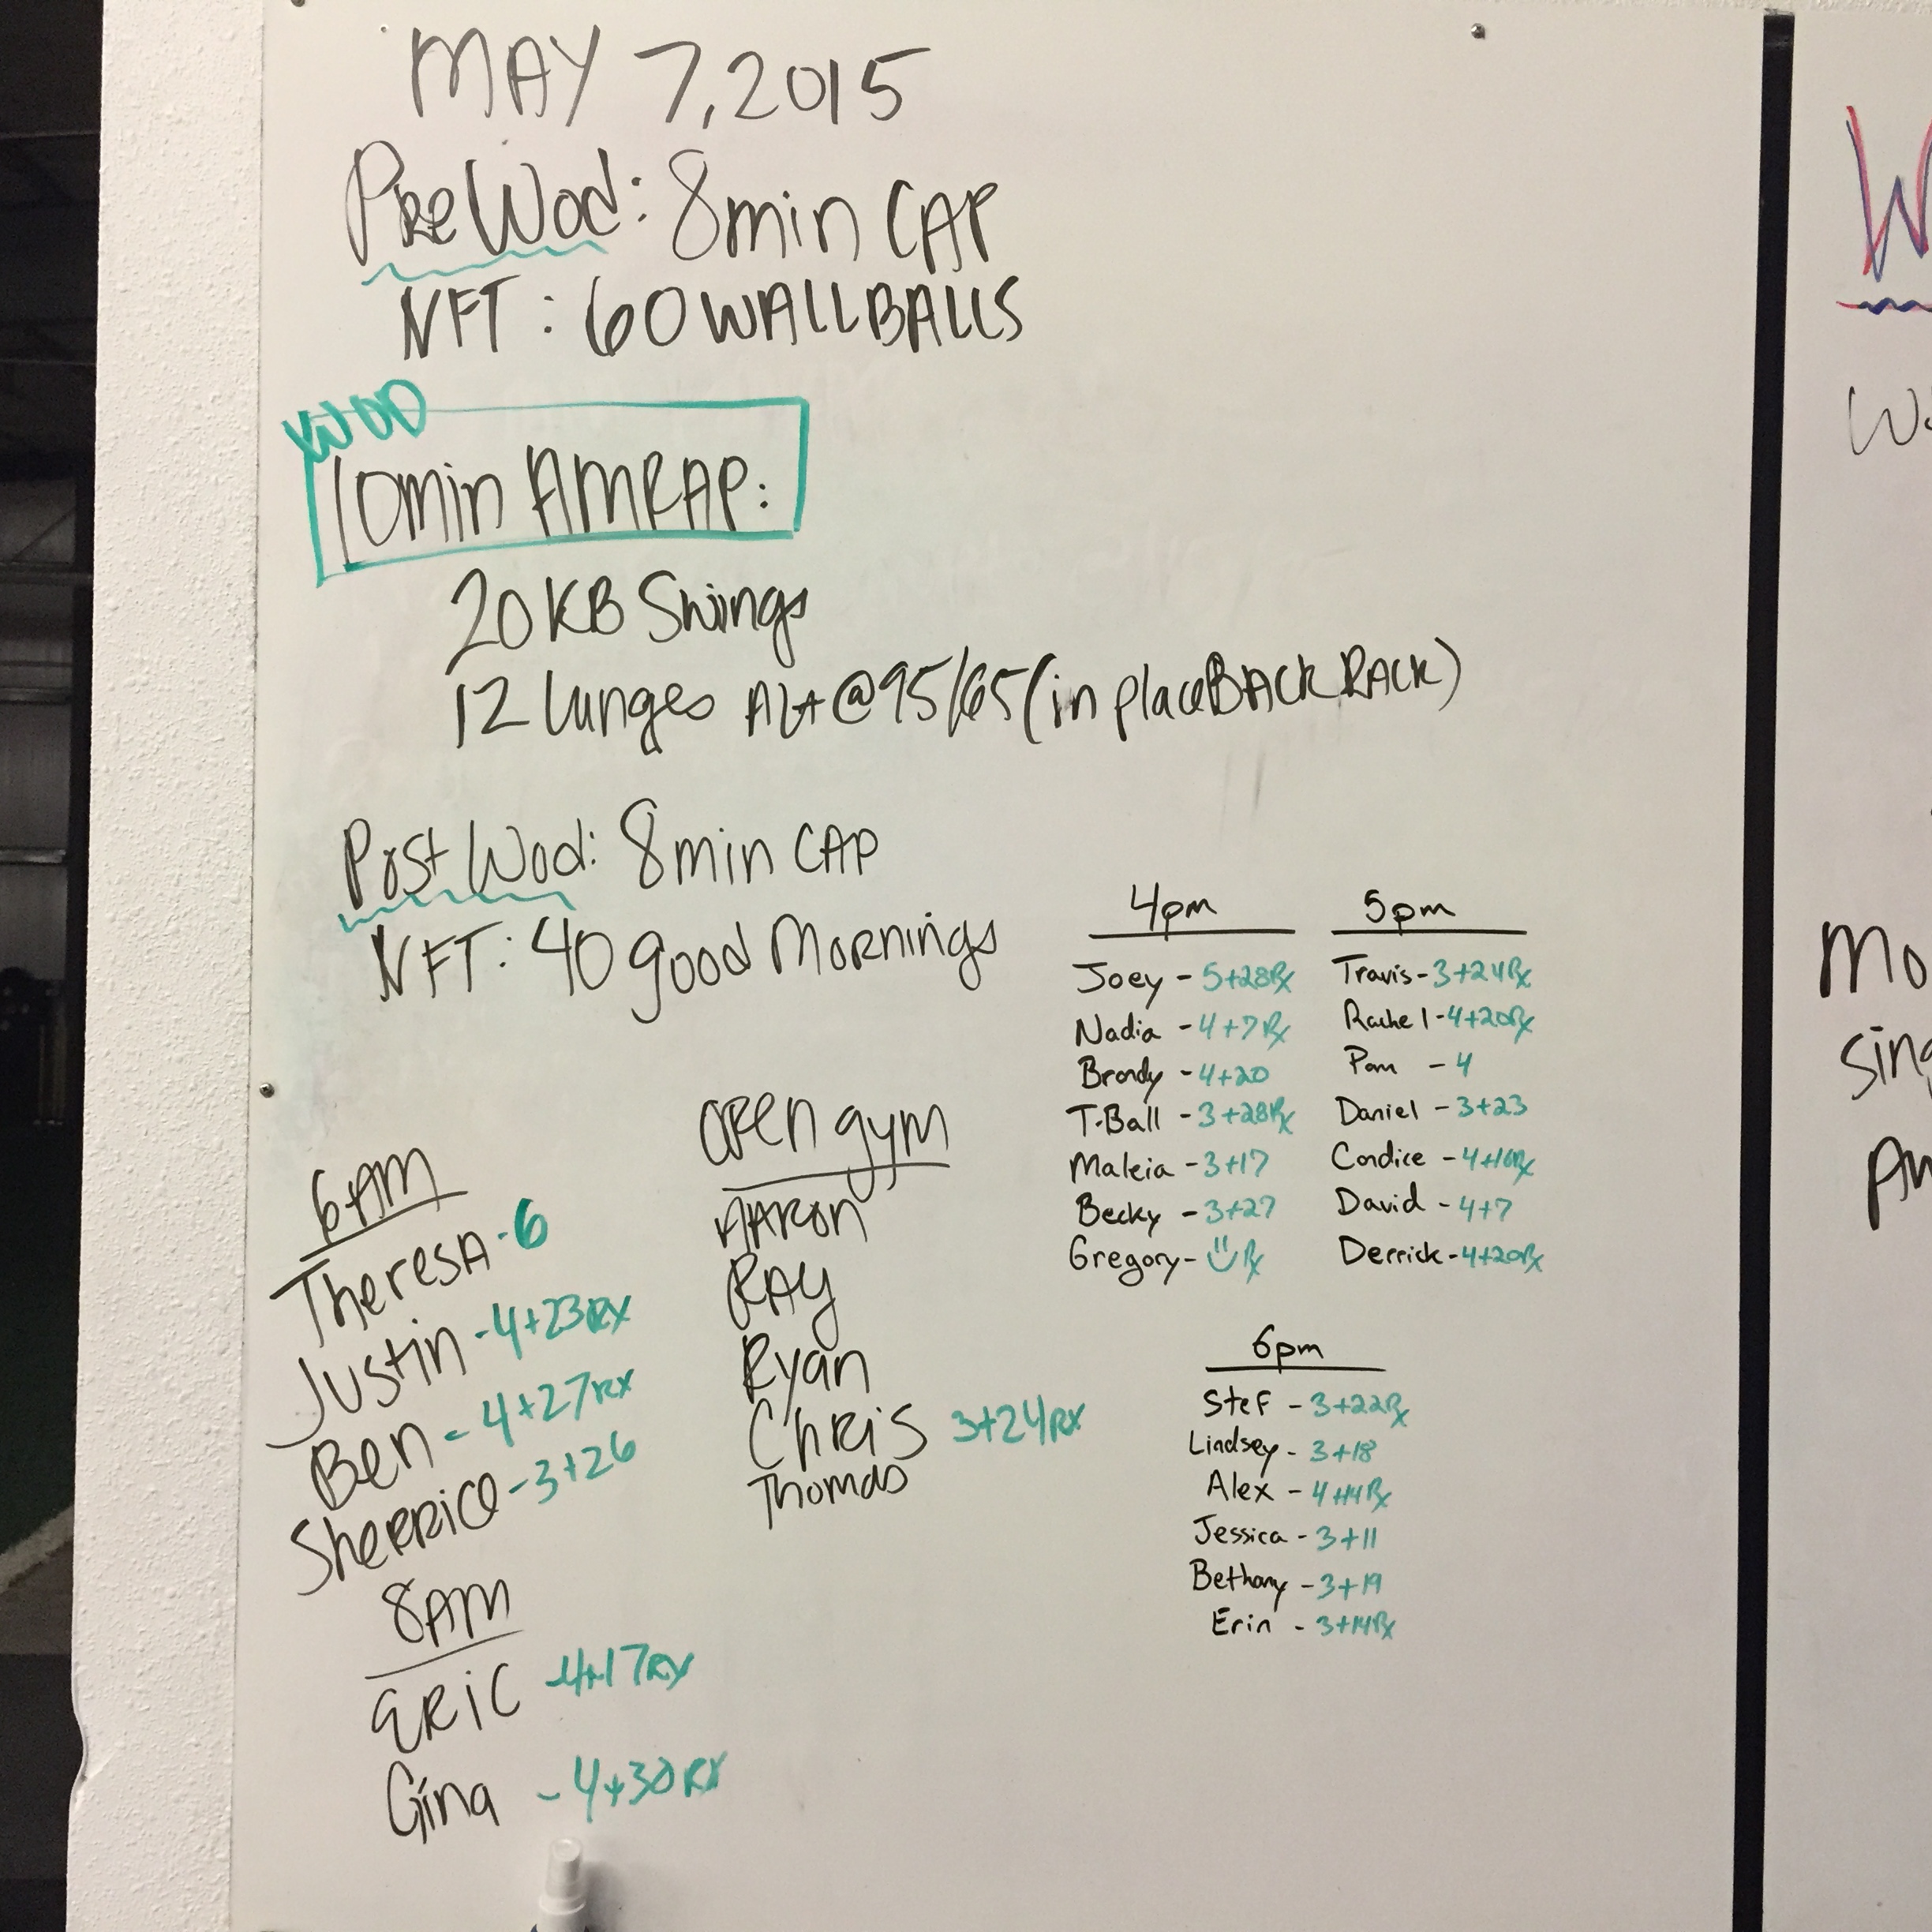 MAY 7, 2015
PreWod: 8min CAP
NFT: 60 WALLBALLS
WOD
10min AMRAP:
20 KB Swings
12 lunges Alt @95/65 (in place BACK RACK)
Post Wod: 8min CAP
NFT: 40 good Mornings
6AM
Theresa - 6
Justin - 4+23 RX
Ben - 4+27 RX
Sherrice - 3+26
8AM
ERIC - 4+17 RX
Gina - 4+30 RX
OPEN gym
AARON
RAY
Ryan
Chris 3+24 RX
Thomas
4pm
Joey - 5+28 Rx
Nadia - 4+7 Rx
Brandy - 4+20
T-Ball - 3+28 Rx
Maleia - 3+17
Becky - 3+27
Gregory - Rx
5pm
Travis - 3+24 Rx
Rachel - 4+20 Rx
Pam - 4
Daniel - 3+23
Candice - 4+16 Rx
David - 4+7
Derrick - 4+20 Rx
6pm
Stef - 3+22 Rx
Lindsey - 3+18
Alex - 4+4 Rx
Jessica - 3+11
Bethany - 3+19
Erin - 3+14 Rx
W
Mo
sing